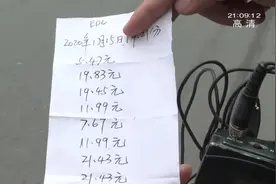 21:09:12
高清
EDC
2020年1月15日19时 分
5.47元
19.83元
19.45元
11.99元
7.67元
11.99元
21.43元
21.43元